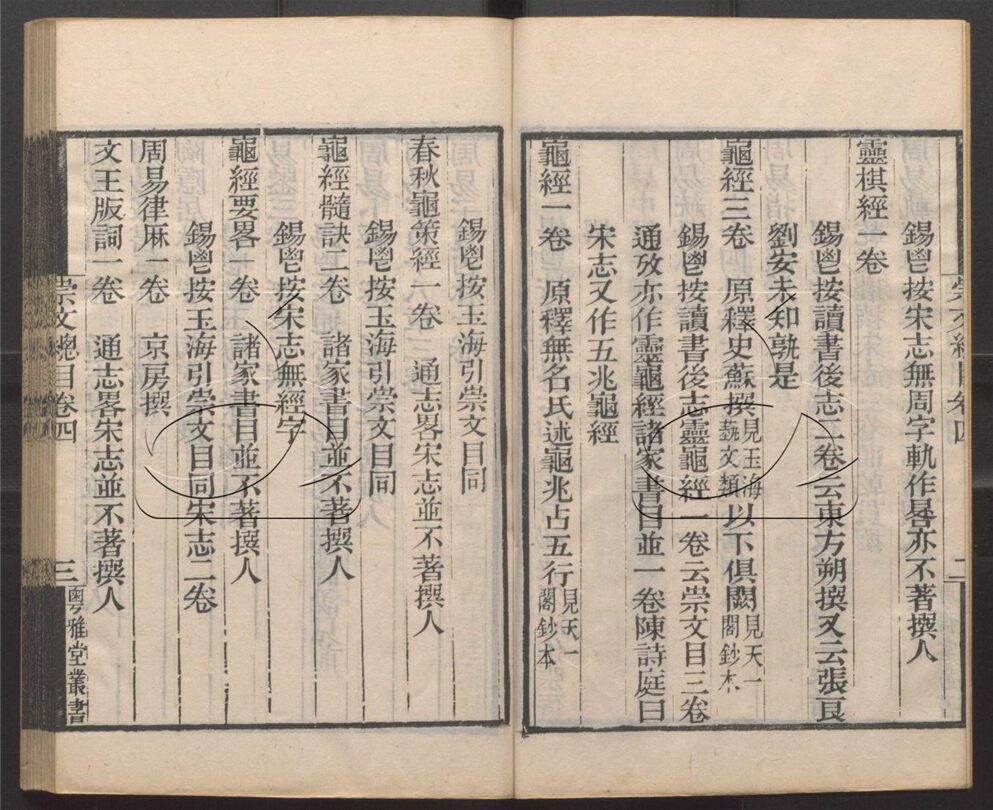 錫鬯按宋志無周字軌作晷亦不著撰人
靈棋經一卷
錫鬯按讀書後志二卷云東方朔撰又云張良
劉安未知孰是
龜經三卷　原釋史蘇撰見玉海藝文類以下俱闕見天一閣鈔本
錫鬯按讀書後志靈龜經一卷云崇文目三卷
通攷亦作靈龜經諸家書目並一卷陳詩庭曰
宋志又作五兆龜經
龜經一卷　原釋無名氏述龜兆占五行見天一閣鈔本
崇文總目卷四　二
錫鬯按玉海引崇文目同
春秋龜策經一卷　通志畧宋志並不著撰人
錫鬯按玉海引崇文目同
龜經髓訣二卷　諸家書目並不著撰人
錫鬯按宋志無經字
龜經要畧一卷　諸家書目並不著撰人
錫鬯按玉海引崇文目同宋志二卷
周易律厤一卷　京房撰
文王版詞一卷　通志畧宋志並不著撰人
崇文總目卷四　三　粵雅堂叢書